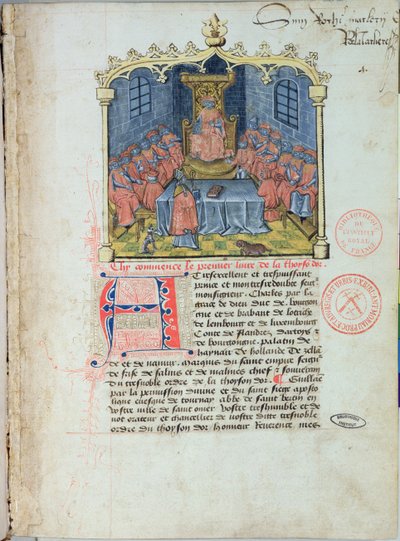 Chy commence le premier livre de la thoyson dor.
A Tresexcellent et trespuissant
prince et mon tresredoubte seigr
monseigneur. Charles par la
grace de dieu duc de bourgon
gne et de brabant de lotriche
de lembourg et de luxembourg
Conte de flandres dartoys et
de bourgoingne. palatin de
haynau de hollande de zellā
de et de namur. marquis du saint empire seigr
de frise de salins et de malines chief et souverain
du tresnoble ordre de la thoyson dor. Guille
par la permission divine et du saint siege aposto
lique evesque de tournay abbe de saint bertin en
vostre ville de saint omer vostre treshumble et de
vot orateur et chancellier de vostre ditte tresnoble
ordre du thoyson dor honneur Reverence mes
BIBLIOTHEQUE
DE
L'INSTITUT
ROYAL DE
FRANCE
BIBLIOTHEQUE
INSTITUT